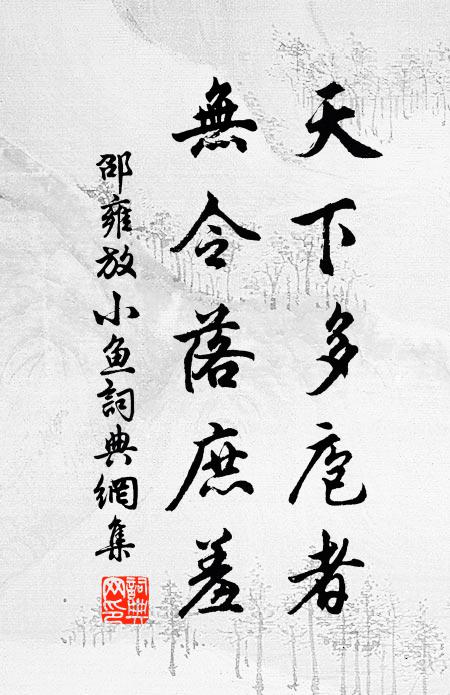 天下多庖者
無令落庶羞
邵雍放小魚詞典網集